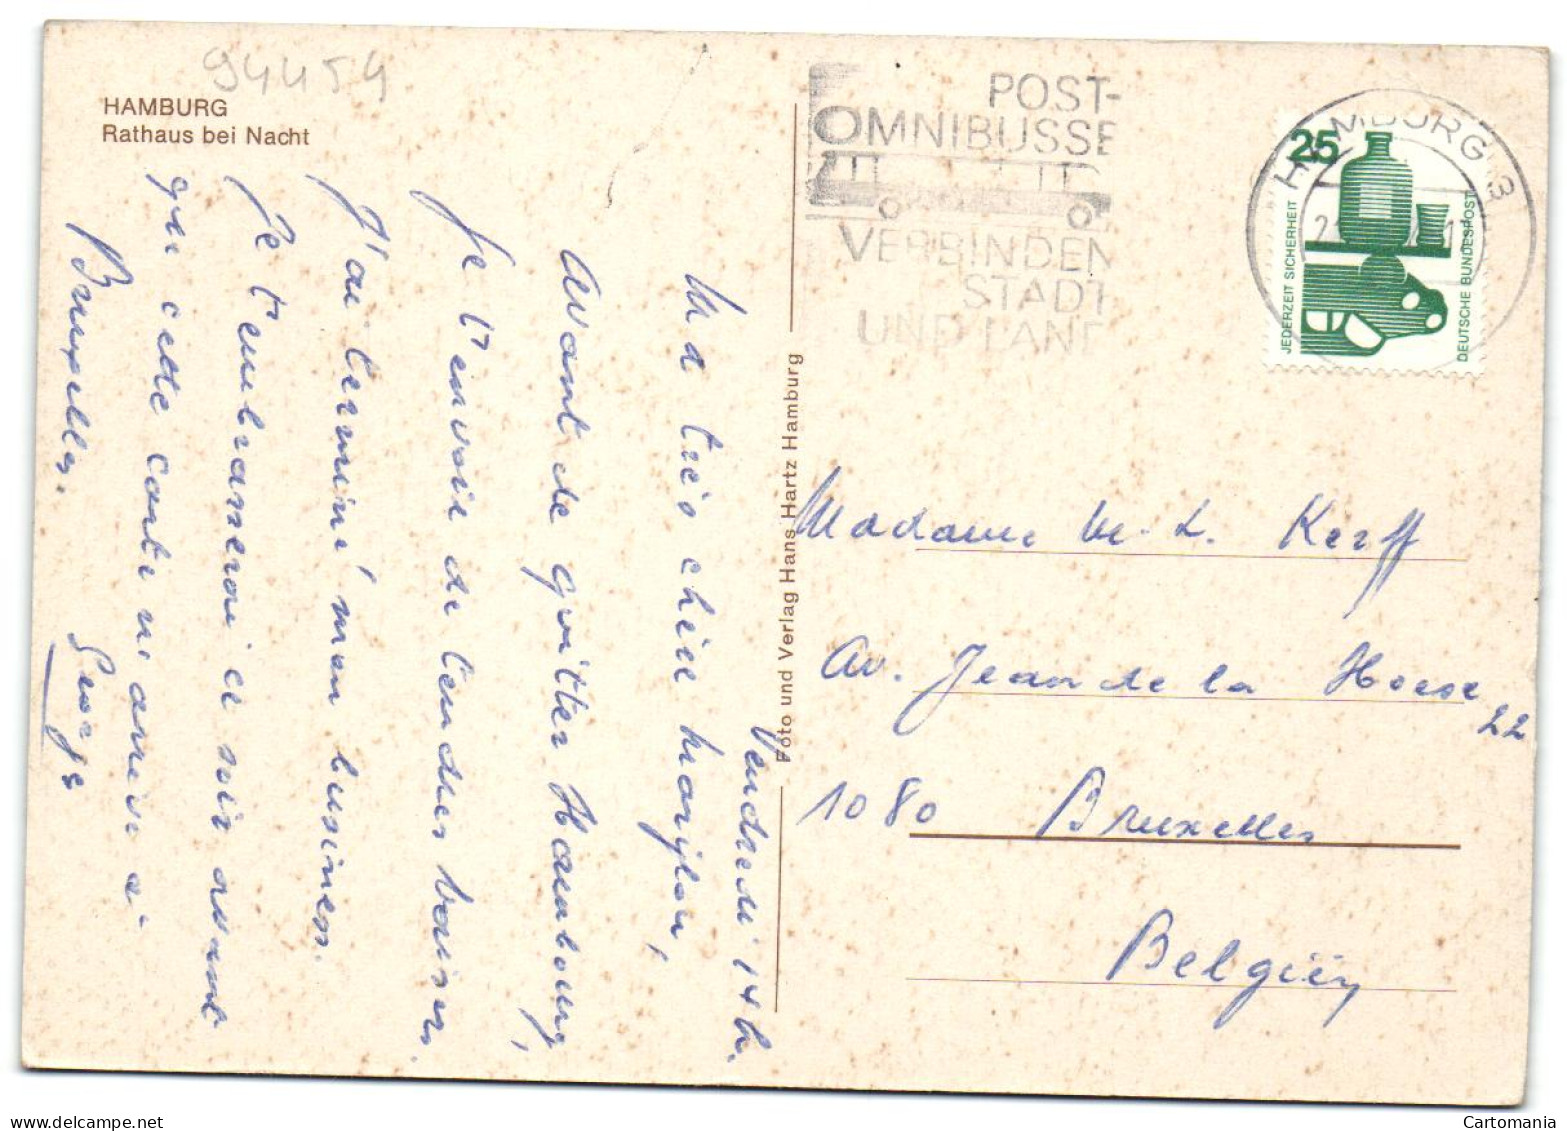 94459
HAMBURG
Rathaus bei Nacht
POST-
OMNIBUSSE
VERBINDEN
STADT
UND LAND
HAMBURG 3
25
JEDERZEIT SICHERHEIT
DEUTSCHE BUNDESPOST
Foto und Verlag Hans Hartz Hamburg
Vendredi 14 h.
Ma très chère Marylou,
Avant de quitter Hambourg,
Je t'envoie de tendres baisers.
J'ai terminé mon business.
Je t'embrasserai ce soir avant
que cette carte n'arrive à
Bruxelles.
George
Madame M. L. Kerff
Av. Jean de la Hoese
22
1080 Bruxelles
Belgiën
Cartomania